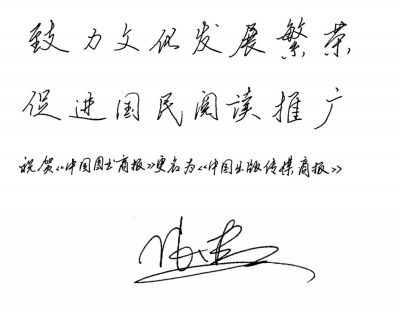 致力文化发展繁荣
促进国民阅读推广
祝贺《中国图书商报》更名为《中国出版传媒商报》